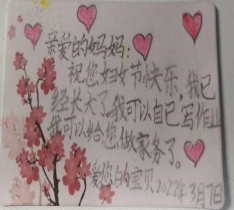 亲爱的妈妈:
祝您妇女节快乐,我已
经长大了。我可以自已写作业
我可以给您做家务了。
爱您的宝贝 2022年3月7日